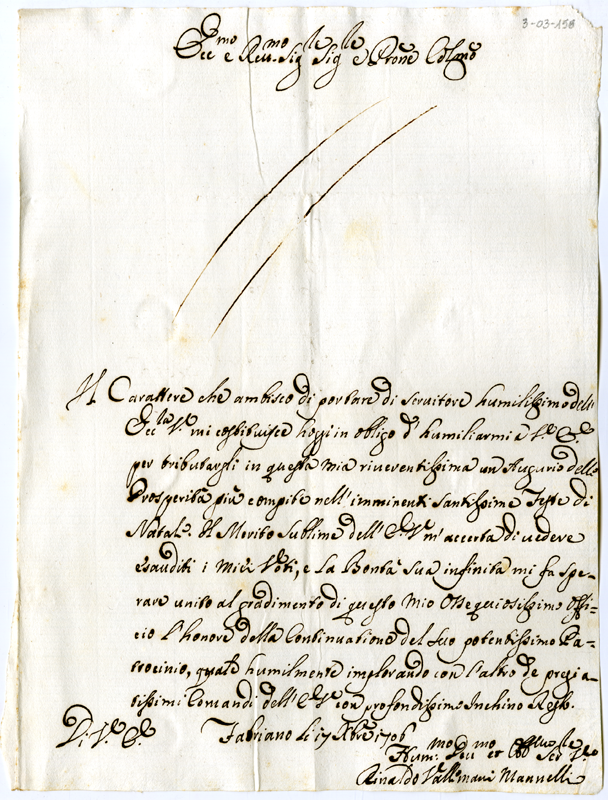 3-03-158
Ecc.mo e Rev.mo Sig.le Sig.le e Prone Colmo
Il Carattere che ambisco di portare di servitore humilissimo dell'
Ecc.la V.ra mi costituisce hoggi in obligo d'humiliarmi a V.ra E.
per tributargli in questa mia riverentissima un Augurio delle
Prosperità più compite nell'imminenti Santissime Feste di
Natale. Il Merito Sublime dell'E. V.ra m'accerta di vedere
esauditi i miei Voti, e la Bontà Sua infinita mi fa spe-
rare unito al gradimento di questo mio Ossequiosissimo Offi-
cio l'honore della Continuatione del Suo potentissimo Pa-
trocinio, quale humilmente implorando con l'altro de pregia-
tissimi Comandi dell'E. V.ra con profondissimo Inchino Resto.
Di V.ra E. Fabriano li 17 Xbre 1706
Hum.mo Dev.mo et Obb.mo Ser.re V.ro
Rinaldo Vallemani Mannelli